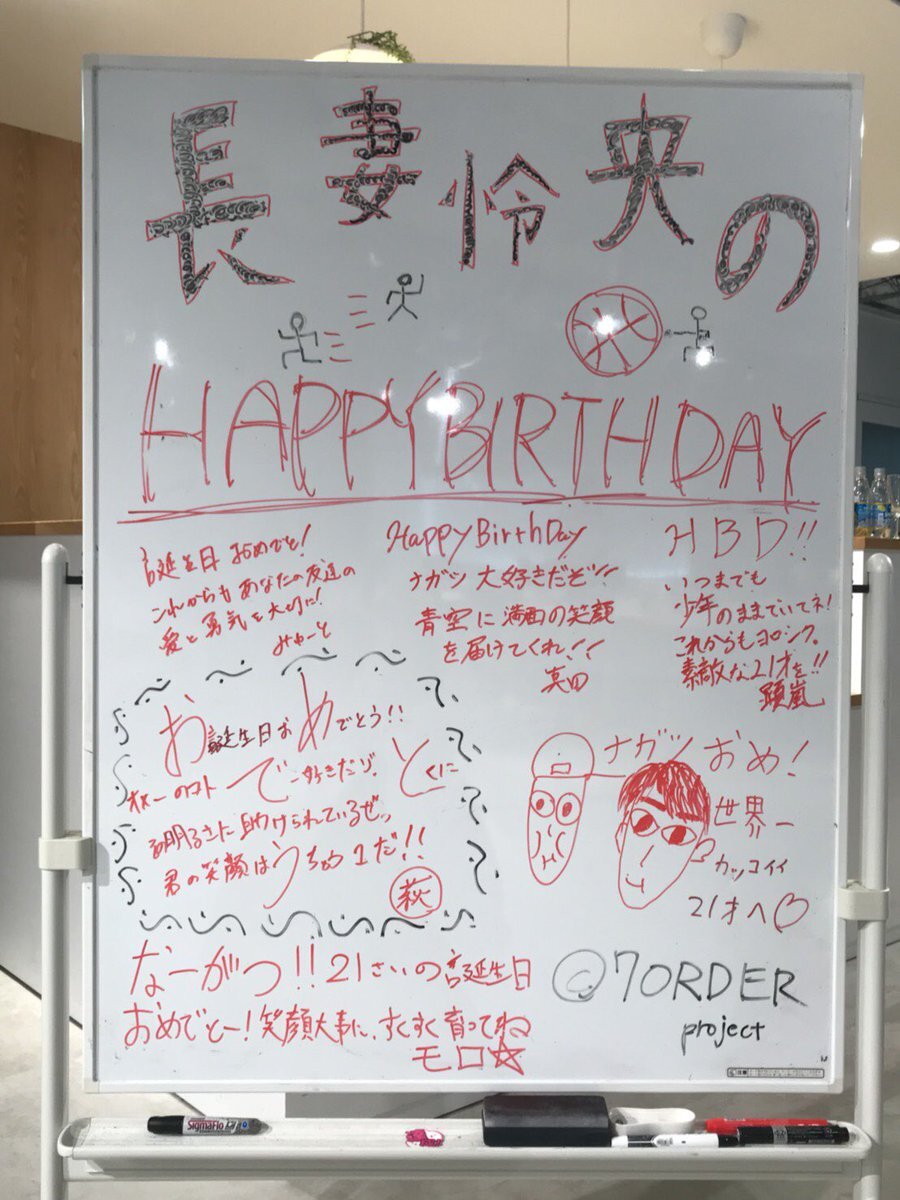 長妻怜央の
HAPPYBIRTHDAY
誕生日おめでと!
これからもあなたの友達の
愛と勇気を大切に!
みゅーと
HappyBirthDay
ナガツ 大好きだぞ!!
青空に満面の笑顔
を届けてくれ!!
真田
HBD!!
いつまでも
少年のままでいてネ!
これからもヨロシク。
素敵な21才を!!
顕嵐
お誕生日おめでとう!!
オメーのコト
で好きだゾ。とくに
明るさに助けられているぜッ
君の笑顔はうちゅう1だ!!
萩
ナガツ おめ!
世界一
カッコイイ
21才へ
なーがつ!!21さいの誕生日
おめでとー!笑顔大事に、すくすく育ってね
モロ☆
@7ORDER
project
SigmaFlo